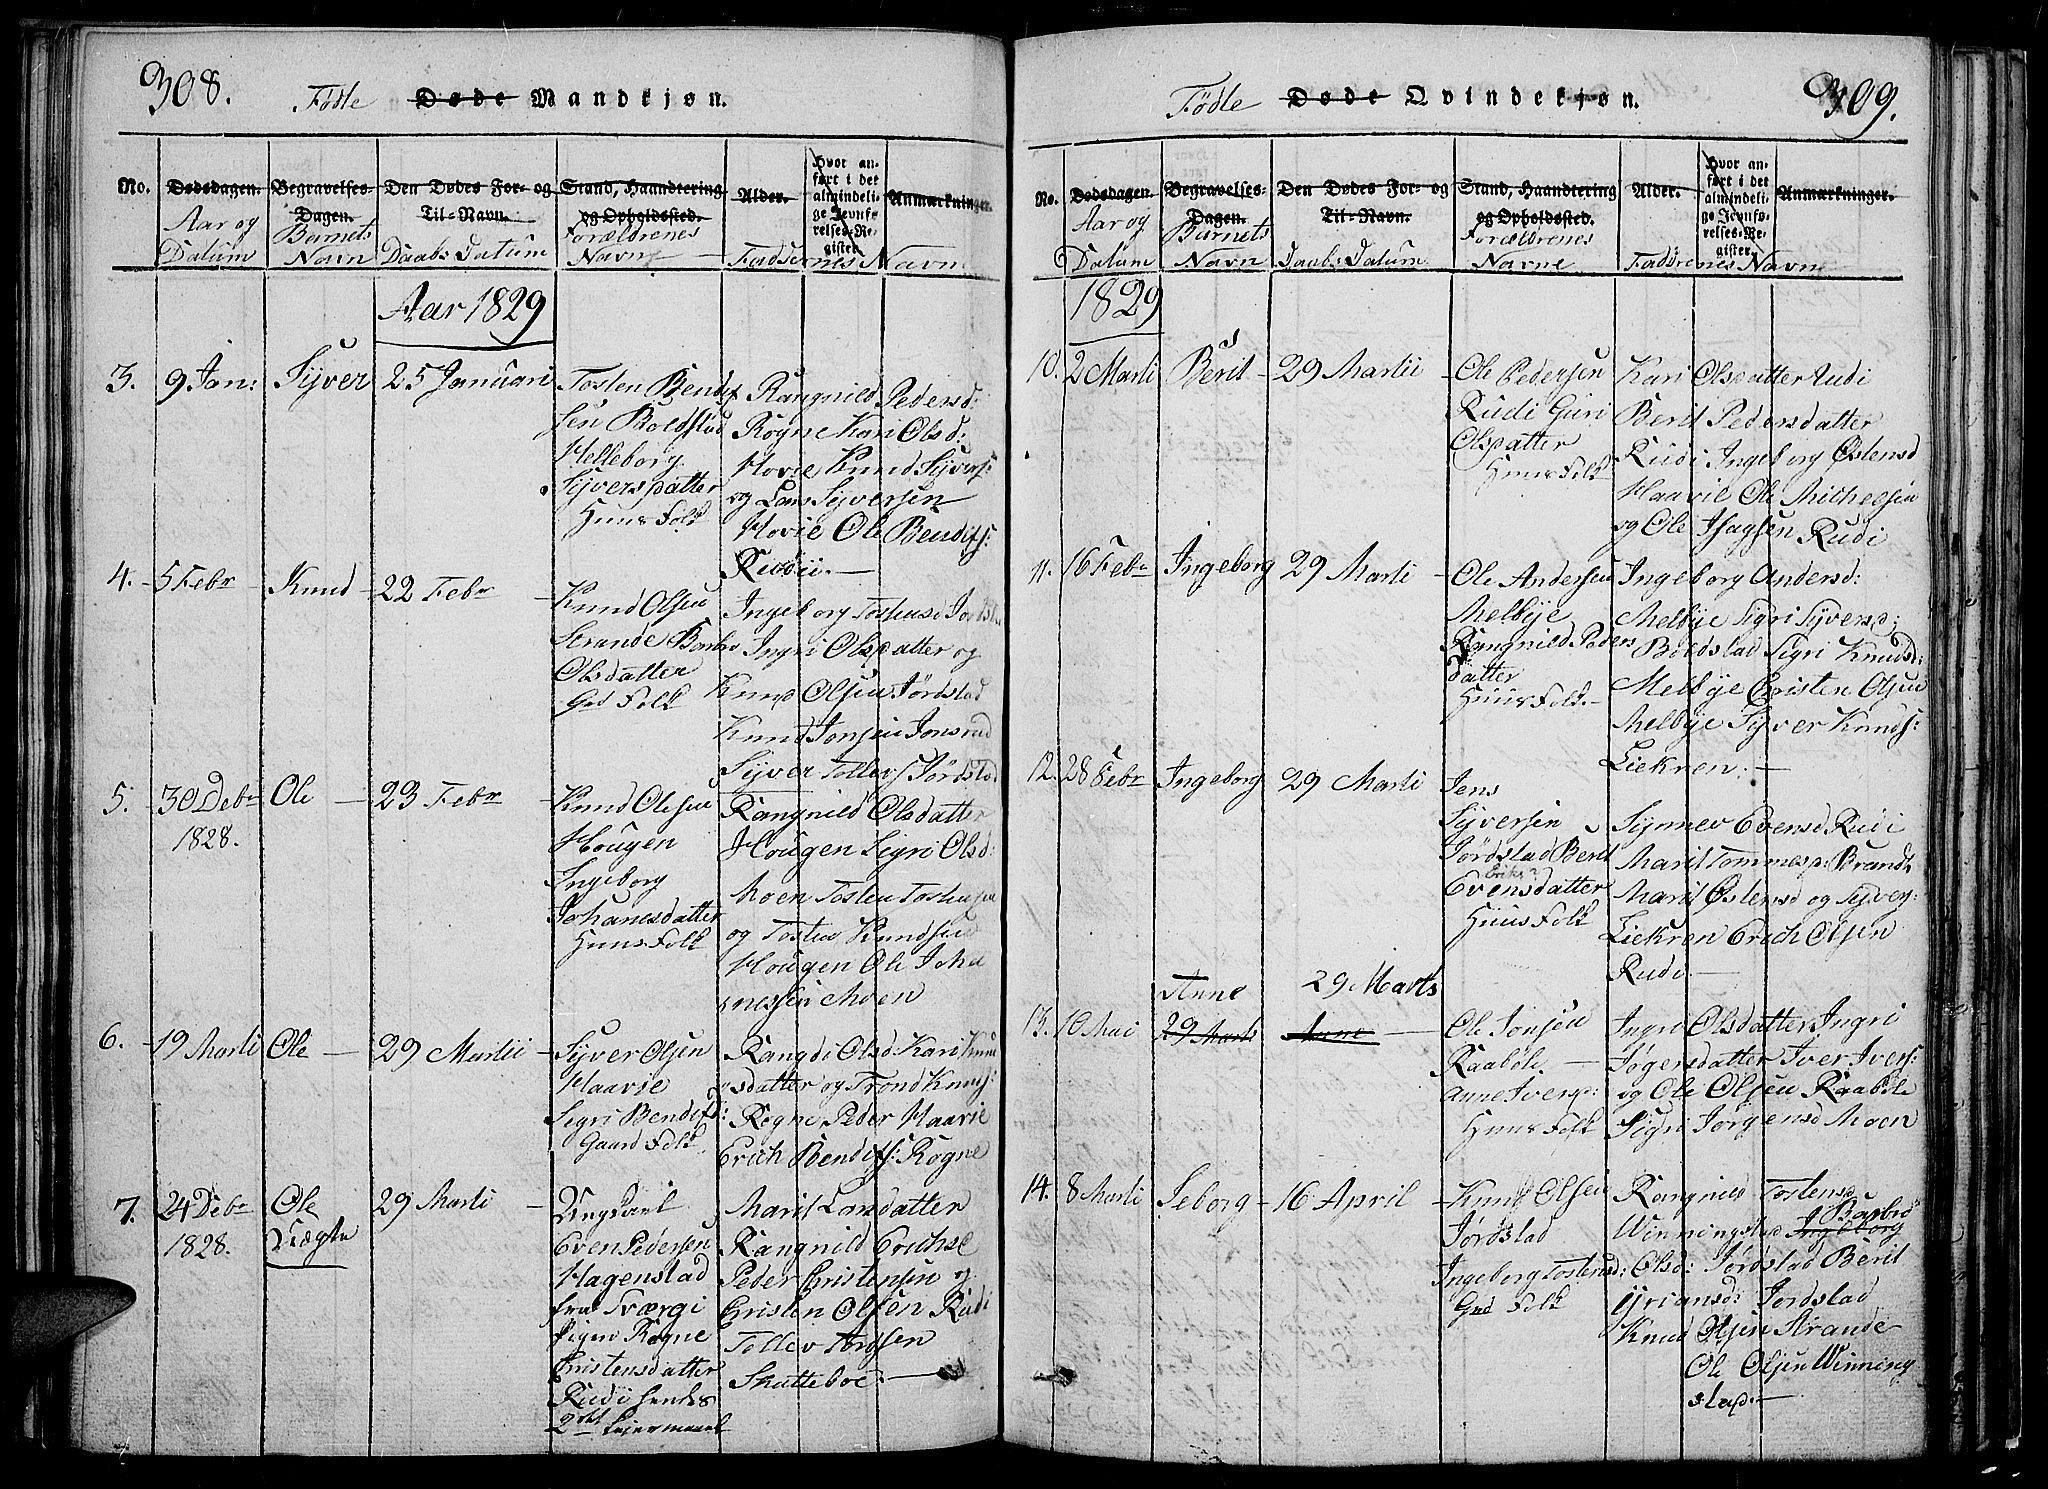 308.
Fødte Døde Mandkjøn.
No.
Dødsdagen.
Aar og
Datum
Begravelses-
Dagen.
Barnets
Navn
Den Dødes For- og
Til-Navn.
Daabs Datum
Stand, Haandtering
og Opholdssted.
Forældrenes
Navne
Alder.
Hvor an-
ført i det
almindeli-
ge Jevnfø-
relses-Re-
gister.
Anmærkninger.
Faddernes Navne
Aar 1829
3. 9 Jan: Syver 25 Januari
Tosten Bendix
sen Boldstad
Helleborg
Syversdatter
Huus Folk
Rangnild Pedersd:
Rogne Kari Olsd:
Hovie Knud Syvers:
og Lars Syversen
Hovie Ole Bendixs:
Rudii. —
4. 5 Febr Knud 22 Febr
Knud Olsen
Strande Barbro
Olsdatter
Grd Folk
Ingeborg Tostensd Jørdsta
Ingri Olsdatter og
Knud Olsen Jørdstad
Knud Jonsen
Syver Tollefs Jørdstad
5. 30 Debr
1828.
Ole — 23 Febr
Knud Olesen
Hougen
Ingeborg
Johanesdatter
Huus Folk
Rangnild Olsdatter
Hougen Sigri Olsd:
Moen Tosten Tostensen
og Tosten Knudsen
Hougen Ole Joha
nesen Moen
6. 19 Marti Ole — 29 Martii
Syver Olsen
Haavie
Sigri Bendixs:
Gaard Folk
Rangdi Olsd: Kari Knud
sdatter og Trond Knuds:
Rogne Peder Haavie
Erich Bendixs: Rogne
7. 24 Debr
1828.
Ole
Uægte
29 Marti
Ungkarl
Even Pedersen
Hagenstad
fra Sværgi
Pigen Rogne
Cristensdatter
Rudi hendes
2det Leiermaal
Marit Larsdatter
Rangnild Erichsd
Peder Cristensen og
Cristen Olsen Rudi
Tollev Arnsen
Skatteboe. —
309.
Fødte Døde Qvindekjøn.
No.
Dødsdagen.
Aar og
Datum
Begravelses-
Dagen.
Barnets
Navn
Den Dødes For- og
Til-Navn.
Daabs Datum
Stand, Haandtering
og Opholdssted.
Forældrenes
Navne
Alder.
Hvor an-
ført i det
almindeli-
ge Jevnfø-
relses-Re-
gister.
Anmærkninger.
Faddrenes Navne
1829
10. 2 Marti Berit - 29 Martii
Ole Pedersen
Rudi Guri
Olsdatter
Huus Folk
Kari Olsdatter Rudi
Berit Pedersdatter
Rudi Ingeborg Østensd
Haavie Ole Michelsen
og Ole Isagsen Rudi
11. 16 Febr Ingeborg 29 Marti
Ole Andersen
Melbye
Rangnild Peders
datter
Huus Folk. -
Ingeborg Andersd:
Melbye Sigri Syversd:
Boldstad Sigri Knudsd:
Melbye Cristen Olsen
Melbye Syver Knuds:
Liekren. —
12. 28 Febr Ingeborg 29 Marti
Jens
Syversen
Jørdstad Berit
Eriks?
Evensdatter
Huus Folk
Synnev Evensd Rudi
Marit Tommesd: Brandt
Marit Østensd og Syver
Liekren Erich Olsen
Rudi. —
Anne 29 Marts
13. 10 Mai 29 Marts Anne —
Ole Jonsen
Raabøle —
Anne Iversd:
Huus Folk
Ingri Olsdatter Ingri
Jøgersdatter Iver Ivers:
og Ole Olsen Raabøle
Sigri Jørgensd Moen
14. 8 Marti Seborg - 16 April
Knud Olsen
Jørdstad
Ingeborg Tostensd:
Grd Folk
Rangnild Tostensd
Barbro
Winningstad Ingeborg
Olsd: Jørdstad Berit
Jordstad
Knud Olsen Strande
Ole Olsen Winning
stad. —